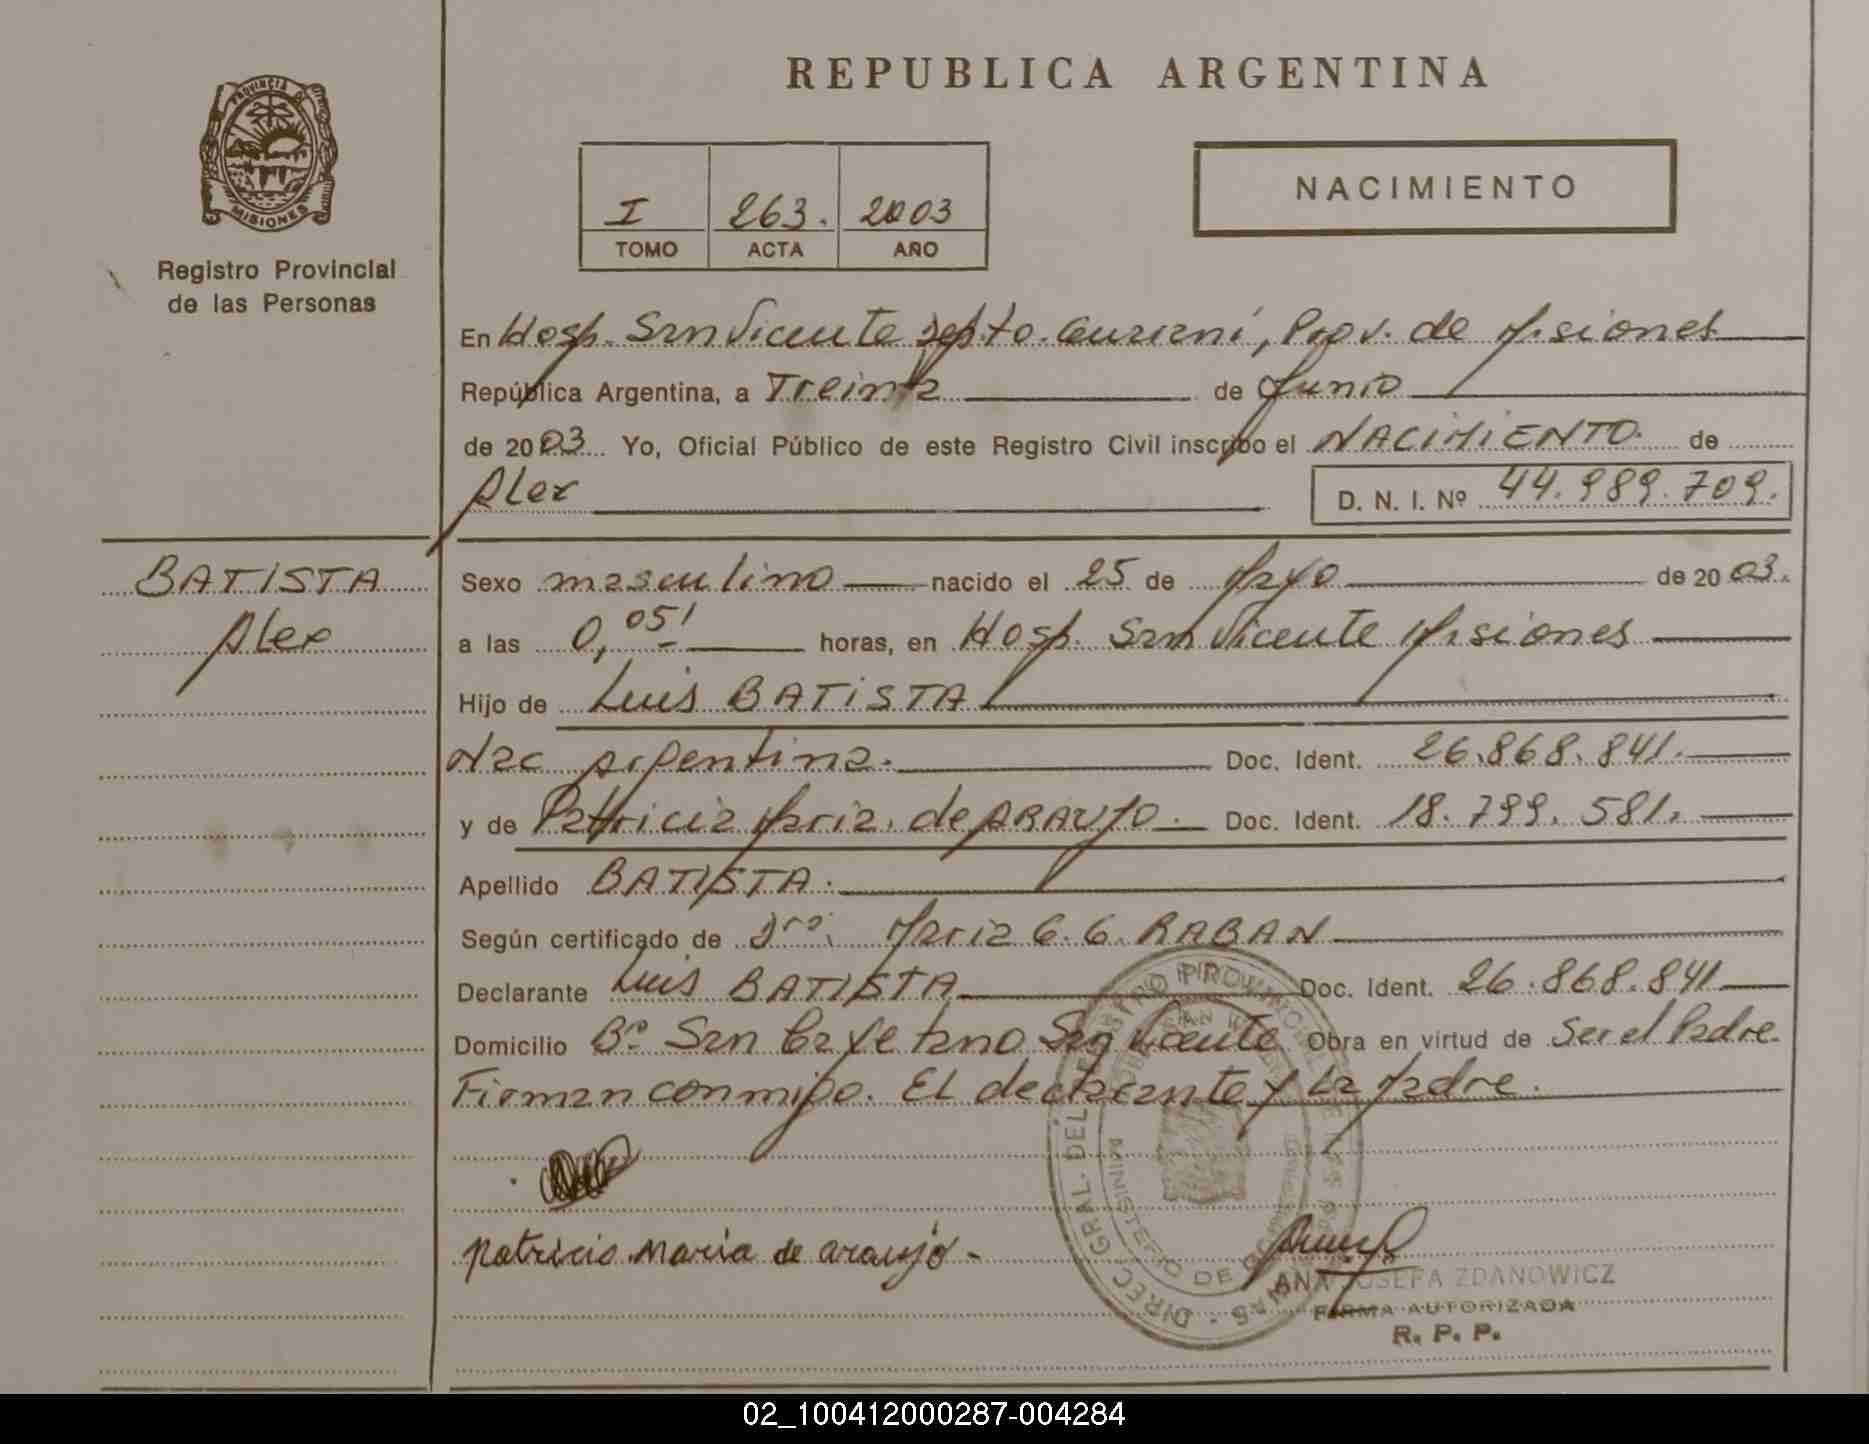 REPUBLICA ARGENTINA
PROVINCIA DE
MISIONES
Registro Provincial
de las Personas
I 263. 2003
TOMO ACTA AÑO
NACIMIENTO
En Hosp. San Vicente Depto. Guaraní, Prov. de Misiones
República Argentina, a Treinta de Junio
de 2003 Yo, Oficial Público de este Registro Civil inscribo el NACIMIENTO. de
Alex
D. N. I. Nº 44.989.709.
BATISTA
Alex
Sexo masculino nacido el 25 de Mayo de 2003.
a las 0,05' horas, en Hosp. San Vicente Misiones
Hijo de Luis BATISTA
Nac Argentina. Doc. Ident. 26.868.841.
y de Patricia Maria. de ARAUJO. Doc. Ident. 18.799.581.
Apellido BATISTA.
Según certificado de Dra. Maria G. G. RABAN
Declarante Luis BATISTA Doc. Ident. 26.868.841
Domicilio Bº San Cayetano San Vicente Obra en virtud de Ser el Padre.
Firman conmigo. El declarante y La Madre.
patricia Maria de araujo-
DIREC. GRAL. DEL REGISTRO PROVINCIAL DE LAS PERSONAS
MINISTERIO DE GOBIERNO
ANA JOSEFA ZDANOWICZ
FIRMA AUTORIZADA
R. P. P.
02_100412000287-004284